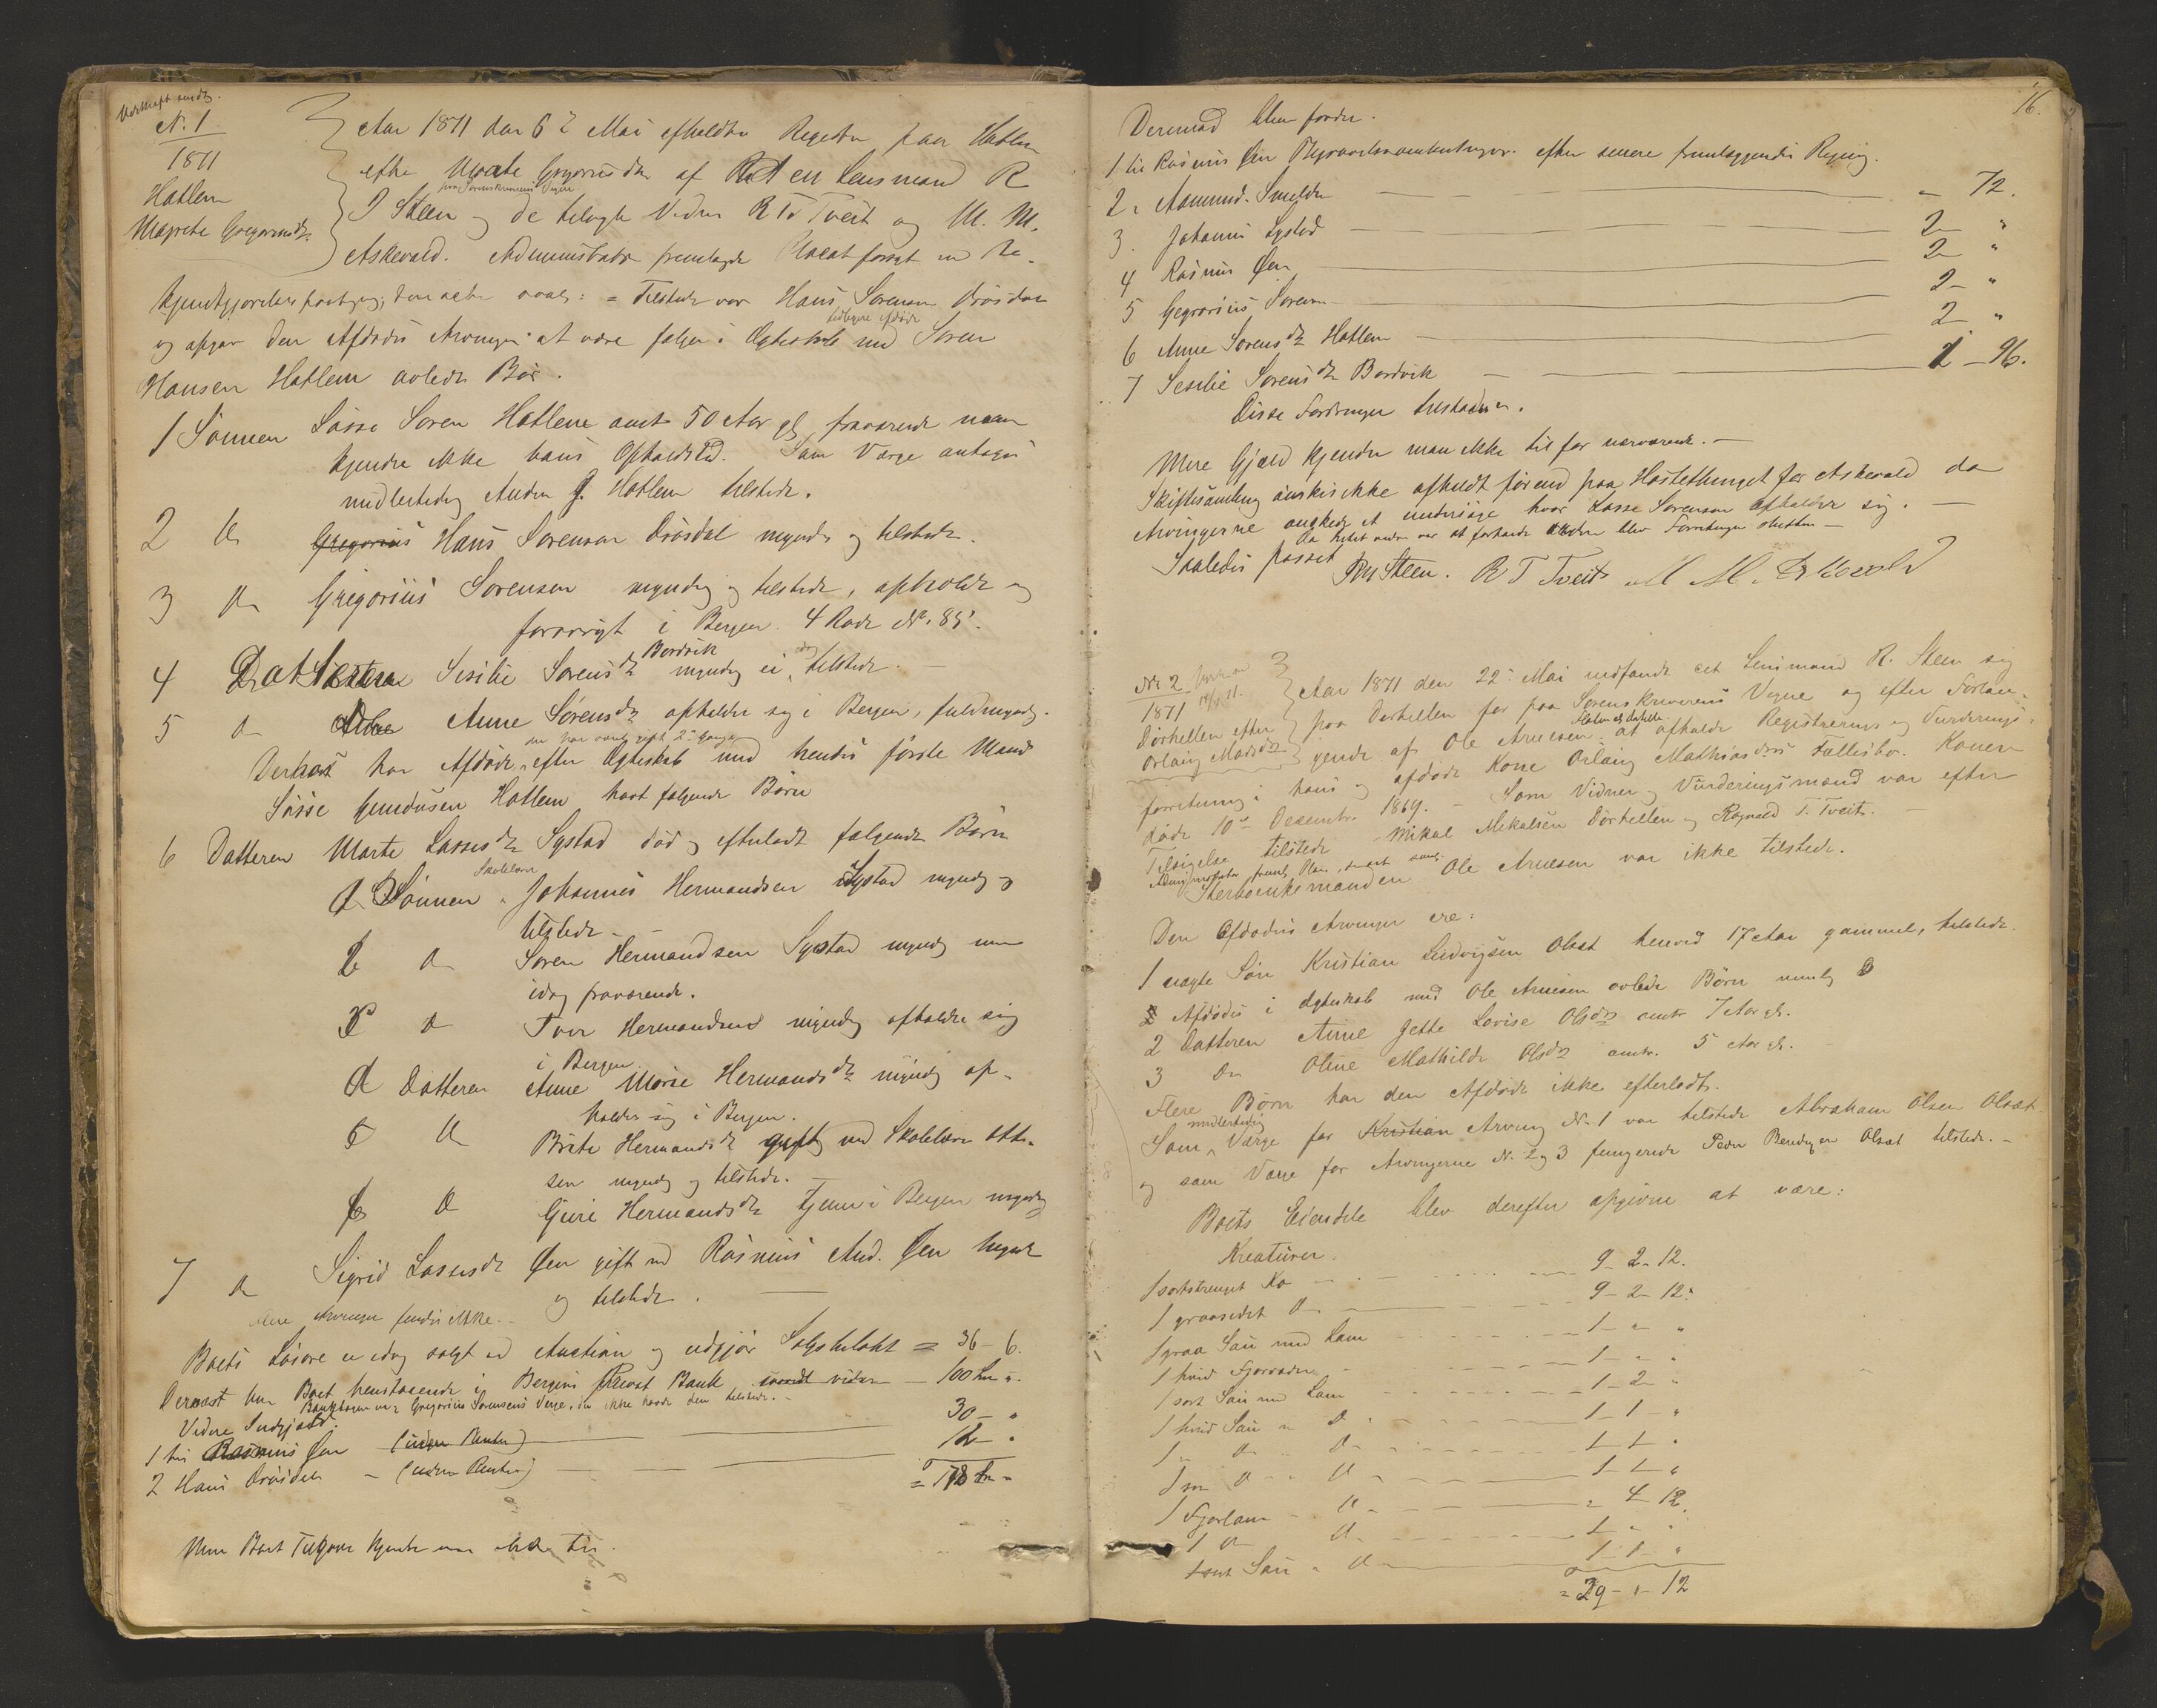 Udskrift sendt.
N. 1
1871
Hatlem
Magrete Gregoriusdtr.
Aar 1871 den 6te Mai afholdtes Registr paa Hatlem
efter Magrete Gregoriusdtr af Lensmand R
paa Sorenskriverens Vegne
I Steen og de tilsagte Vidner R T Tveit og M. M.
Askevold. Administrator fremlagde Placat forsynt med Be-
kjendtgjørelses paategn, = Tilstede var Hans Sørensen Drösdal
tidligere afdøde
og opgav den Afdødes Arvinger at være følge i Ægteskab med Søren
Hansen Hatlem avlede Bør.
1 Sønnen Lasse Søren Hatlem omt 50 Aar gl fraværende man
kjender ikke hans Opholdsted. Som Værge antages
midlertidig Anders J. Hatlem tilstede.
2 do Gregorius Hans Sørensen Drösdal myndig og tilstede.
3 do Gregorius Sørensen myndig og tilstede, opholde sig
forøvrigt i Bergen 4 Rode No. 85.
Bordvik idag
4 Datteren Sesilie Sørensdtr myndig ei tilstede. —
5 do Anne Sørensdtr opholder sig i Bergen, fuldmyndig.
der har været gift 2de Gange
Dernæst har Afdøde efter Ægteskab med hendes første Mand
Lasse Hatlem havt følgende Børn
6 Datteren Marte Lassesdtr Systad død og efterladt følgende Børn
Skolelærer
a Sønnen Johannes Hermandsen Systad myndig og
tilstede —
b do Søren Hermandsen Systad myndig men
idag fraværende.
c do Iver Hermandsen myndig opholder sig
i Bergen
d Datteren Anne Marie Hermandsdtr myndig op-
holder sig i Bergen.
e do Brite Hermandsdtr gift med Skolelærer Otte-
sen myndig og tilstede. —
f do Guri Hermandsdtr tjener i Bergen myndig
7 do Sigrid Lassesdtr Øen gift med Rasmus And. Øen
og tilstede. —
Flere Arvinger findes ikke. —
Boets Løsøre er idag solgt ved Auction og udgjør Salgsbeløbet = 36 - 6.
Dernæst har Boet henstaaende i Bergens Privat Bank - 100 "
Bankbogen var i Gregorius Sørensens Værge, der ikke havde den tilstede. —
Videre Indgjæld.
1 hos Rasmus Øen - (uden Renter) — 30 - "
2 Hans Drösdal - (uden Renter) — 12 "
= 178
Mere Boet Tilhørende kjender man ikke til.
16.
Derimod blev fordre.
1 til Rasmus Øen Begravelsesomkostninger efter senere fremlæggende Regning.
2 " Aamund Smelder — " 72.
3. Johannes Systad — 2 - "
4 Rasmus Øen — 2 - "
5 Gregorius Sørensen — 2 - "
6 Anne Sørensdtr Hatlem — 2 "
7 Sesilie Sørensdtr Bordvik — 1 - 96.
Disse Fordringer tilstaaes.
Mere Gjæld kjender man ikke til for nærværende. —
Skiftesamling ønskes ikke afholdt førend paa Høstethinget for Askevold da
Arvingerne ønskede at undersøge hvor Lasse Sørensen opholder sig. —
Da Intet videre var at forhandle blev Forretningen sluttet —
Saaledes passet
R I Steen. R T Tveit M M Askevold
No 2
1871
Dørhellen efter
Orlaug Madsdtr
Aar 1871 den 22de Mai indfandt Lensmand R. Steen sig
paa Dørhellen for paa Sorenskriverens Vegne og efter Forlan-
gende af Ole Arnesen at afholde Registrerings og Vurderings-
forretning i hans og afdøde Kone Orlaug Mathiasdtrs Fællesbo. Konen
døde 10de Decembr 1869. — Som Vidner og Vurderingsmænd var efter
Tilsigelse tilstede Mikal Mikalsen Dørhellen og Ragnald T. Tveit. —
Sterboenkemanden Ole Arnesen var ikke tilstede.
Den Afdødes Arvinger ere:
1 uægte Søn Kristian Ludvigsen Olset henved 17 Aar gammel, tilstede.
Afdødes i Ægteskab med Ole Arnesen avlede Børn nemlig
2 Datteren Anne Jette Lovise Olsdtr omtr 7 Aar gl.
3 do Oline Mathilde Olsdtr omtr. 5 Aar gl. —
Flere Børn har den Afdøde ikke efterladt.
midlertidig
Som Værge for Kristian Arving No 1 var tilstede Abraham Olsen Olset
og som Værge for Arvingerne No 2 og 3 fungerede Peder Olset tilstede. —
Boets Eiendele blev derefter opgivne at være:
Kreaturer.
1 sortstrenget Ko — 9 - 2 - 12.
1 graasidet do — 9 - 2 - 12.
1 graa Sau med Lam — 1 - " "
1 hvid — 1 - " "
1 sort Sau med Lam — 1 - 2 - "
1 hvid Sau " do — 1 - 1 - "
1 " do " do — 1 - 1 "
1 do " do — 1 - 1 - "
1 do — " 4 - 12.
1 do do — 1 - " "
1 sort Sau " do — 1 - 1 - "
= 29 - 1 - 12